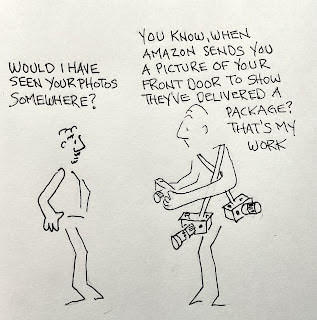 WOULD I HAVE
SEEN YOUR PHOTOS
SOMEWHERE?
YOU KNOW, WHEN
AMAZON SENDS YOU
A PICTURE OF YOUR
FRONT DOOR TO SHOW
THEY'VE DELIVERED A
PACKAGE?
THAT'S MY
WORK